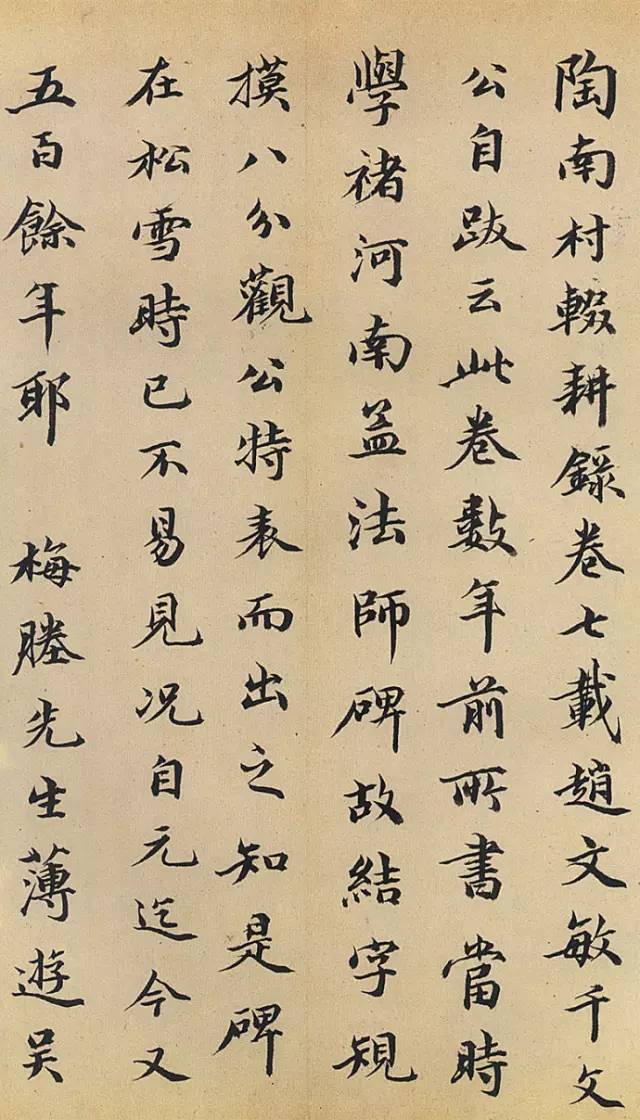 陶南村輟耕錄卷七載趙文敏千文
公自跋云此卷數年前所書當時
學褚河南孟法師碑故結字規
摸八分觀公特表而出之知是碑
在松雪時已不易見況自元迄今又
五百餘年耶 梅塍先生薄遊吳